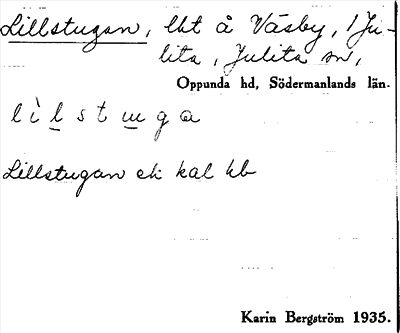 Lillstugan, lht å Väsby, i Ju-
lita, Julita sn,
Oppunda hd, Södermanlands län.
lìlstuga
Lillstugan ek kal hb
Karin Bergström 1935.